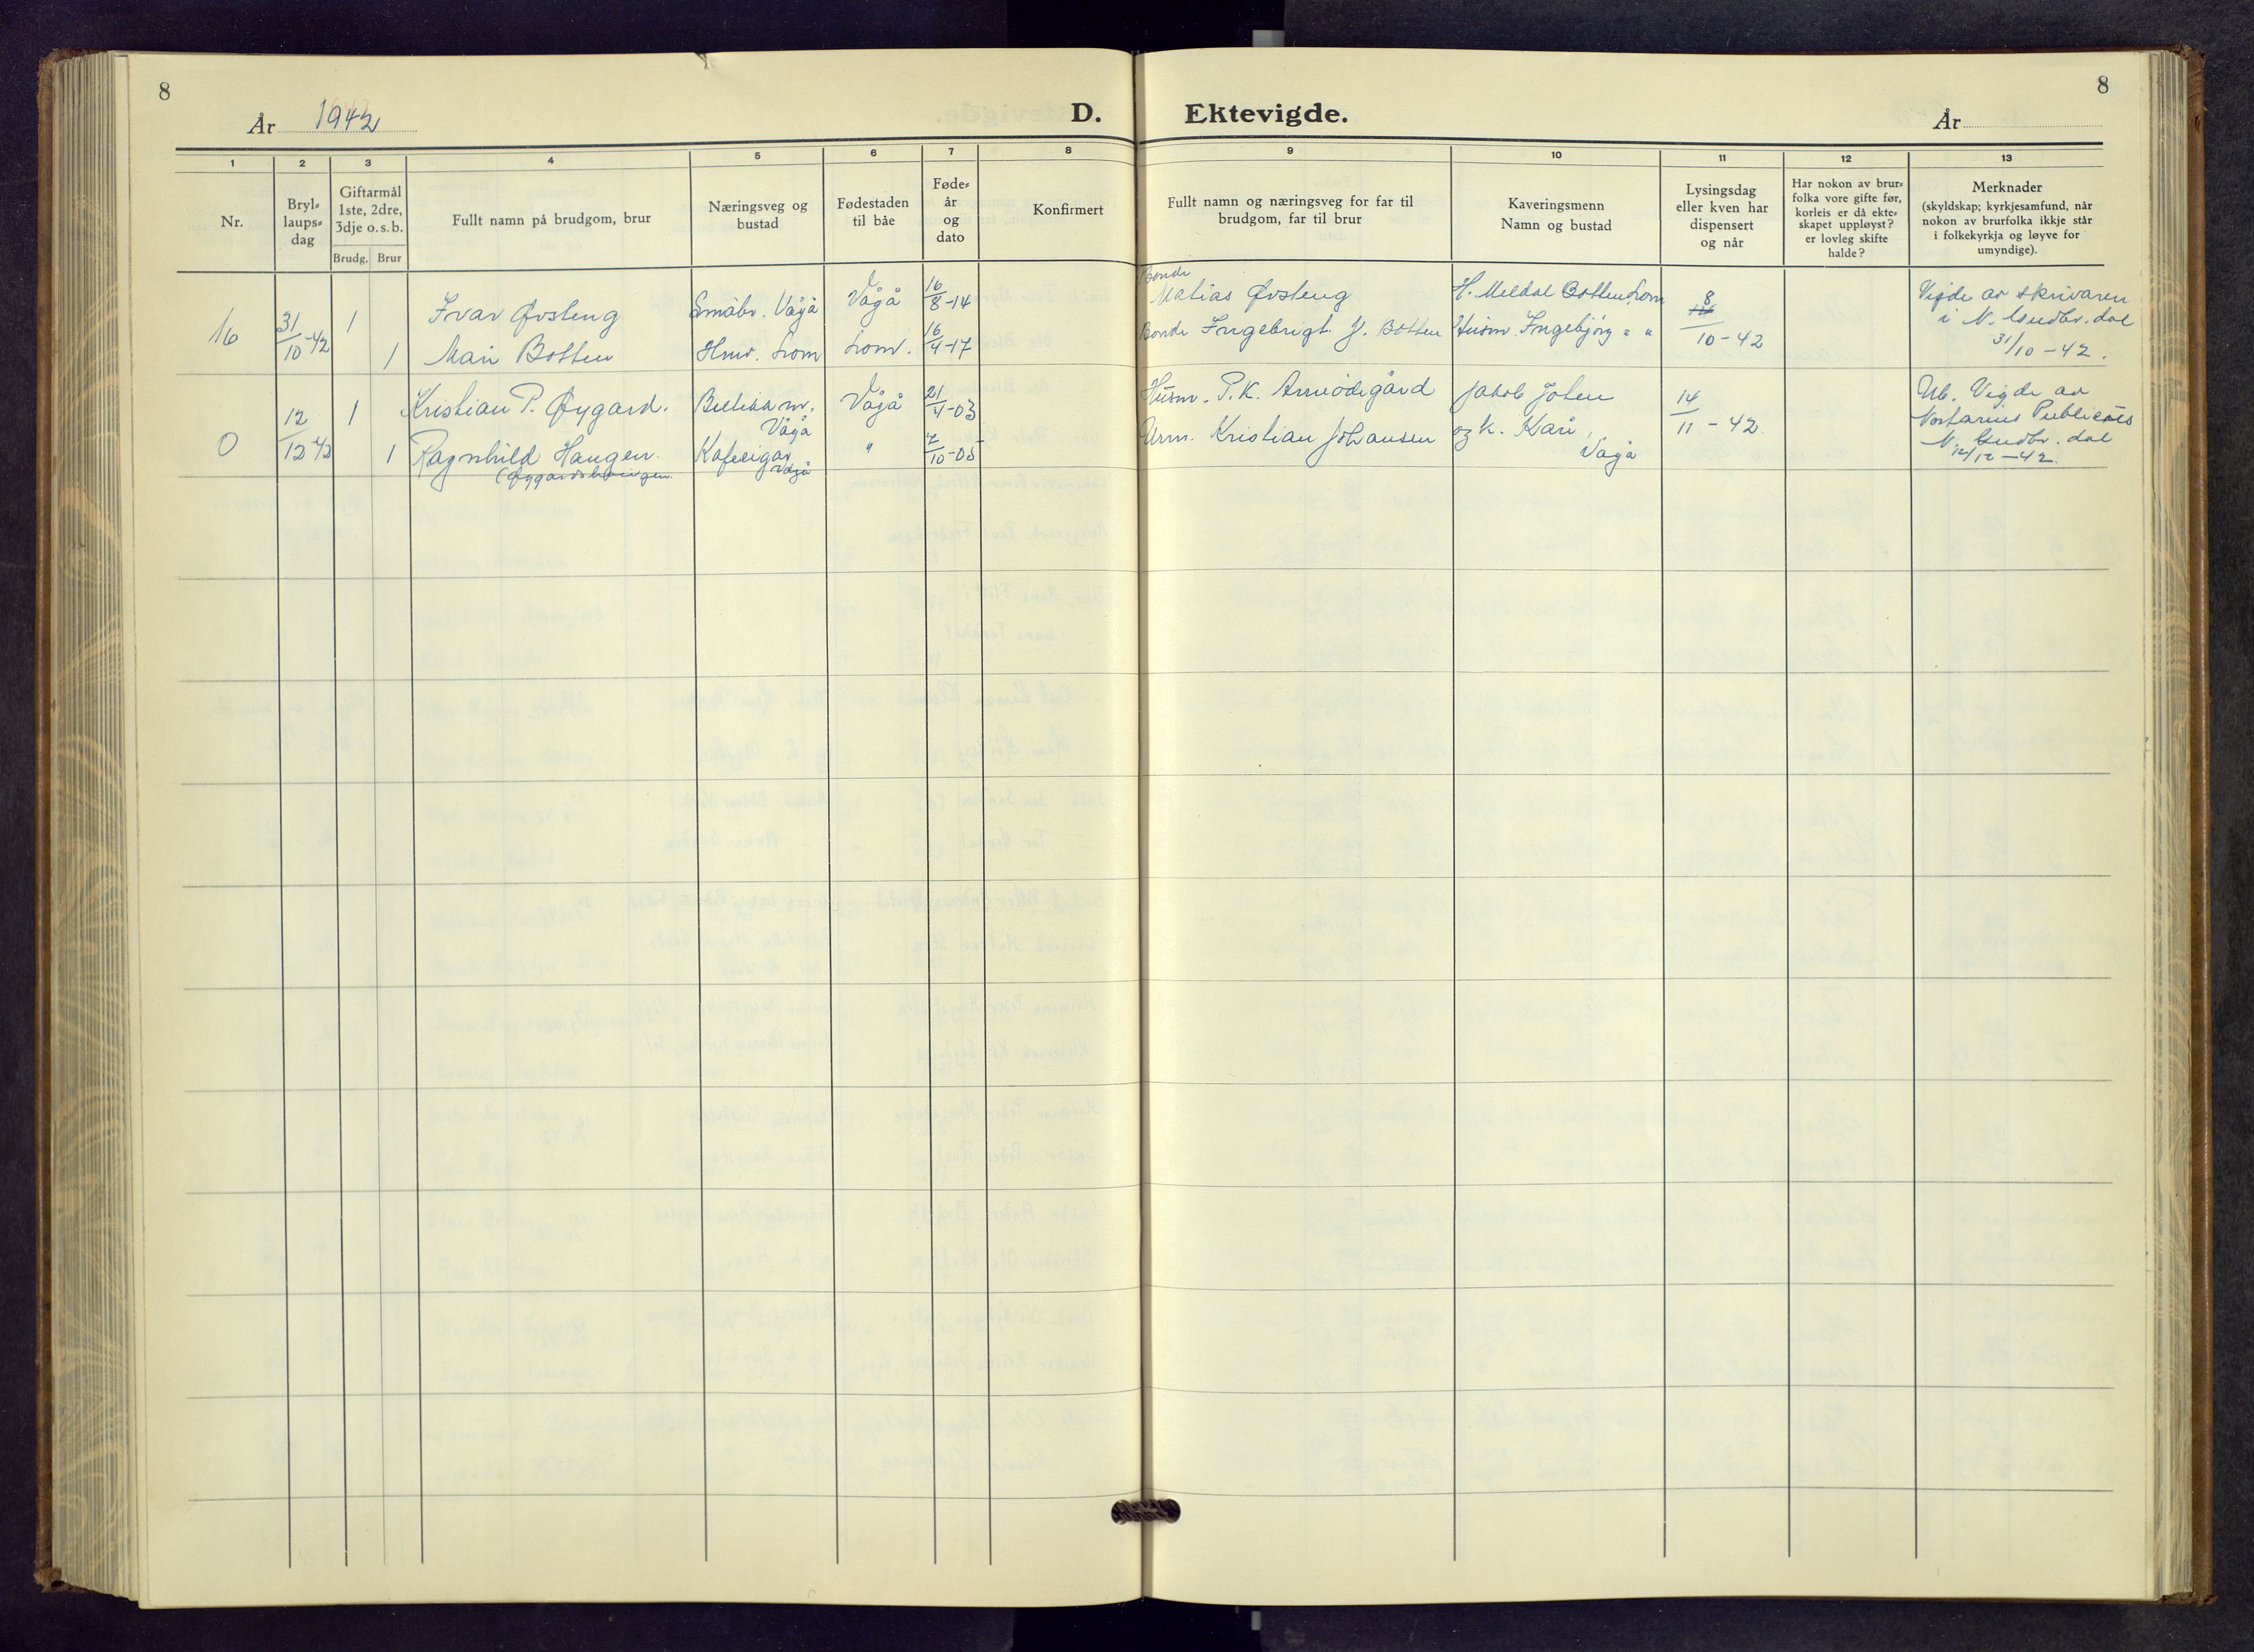 8
År 1942
D. Ektevigde.
År
8
1 2 3 4 5 6 7 8 9 10 11 12 13
Nr.
Bryl=
laups=
dag
Giftarmål
1ste, 2dre,
3dje o.s.b.
Brudg. Brur
Fullt namn på brudgom, brur
Næringsveg og
bustad
Fødestaden
til båe
Føde=
år
og
dato
Konfirmert
Fullt namn og næringsveg for far til
brudgom, far til brur
Kaveringsmenn
Namn og bustad
Lysingsdag
eller kven har
dispensert
og når
Har nokon av brur=
folka vore gifte før,
korleis er då ekte=
skapet uppløyst?
er lovleg skifte
halde?
Merknader
(skyldskap; kyrkjesamfund, når
nokon av brurfolka ikkje står
i folkekyrkja og løyve for
umyndige).
16
31/10-42
1
Ivar Øvsteng
Småbr. Vågå
Vågå
16/8-14
Bonde
Matias Øvsteng
H. Meldal Botten, Lom
8/10-42
Vigde av skrivaren
i N. Gudbr. dal
31/10-42.
1
Mari Botten
Lom
Lom.
16/4-17
Bonde Ingebrigt J. Botten
Husm. Ingebjørg " "
0
12/12 42
1
Kristian P. Øygard.
Vågå
Vågå
21/4-03
Husm. P. K.
Jakob
14/11-42.
Ub. Vigde av
Notarius Publicus
N. Gudbr. dal
12/12-42.
1
Ragnhild Haugen.
(Øygardshaugen.
Kafeeigar
Vågå
"
Arm. Kristian Johansen
og k. Kari,
Vågå